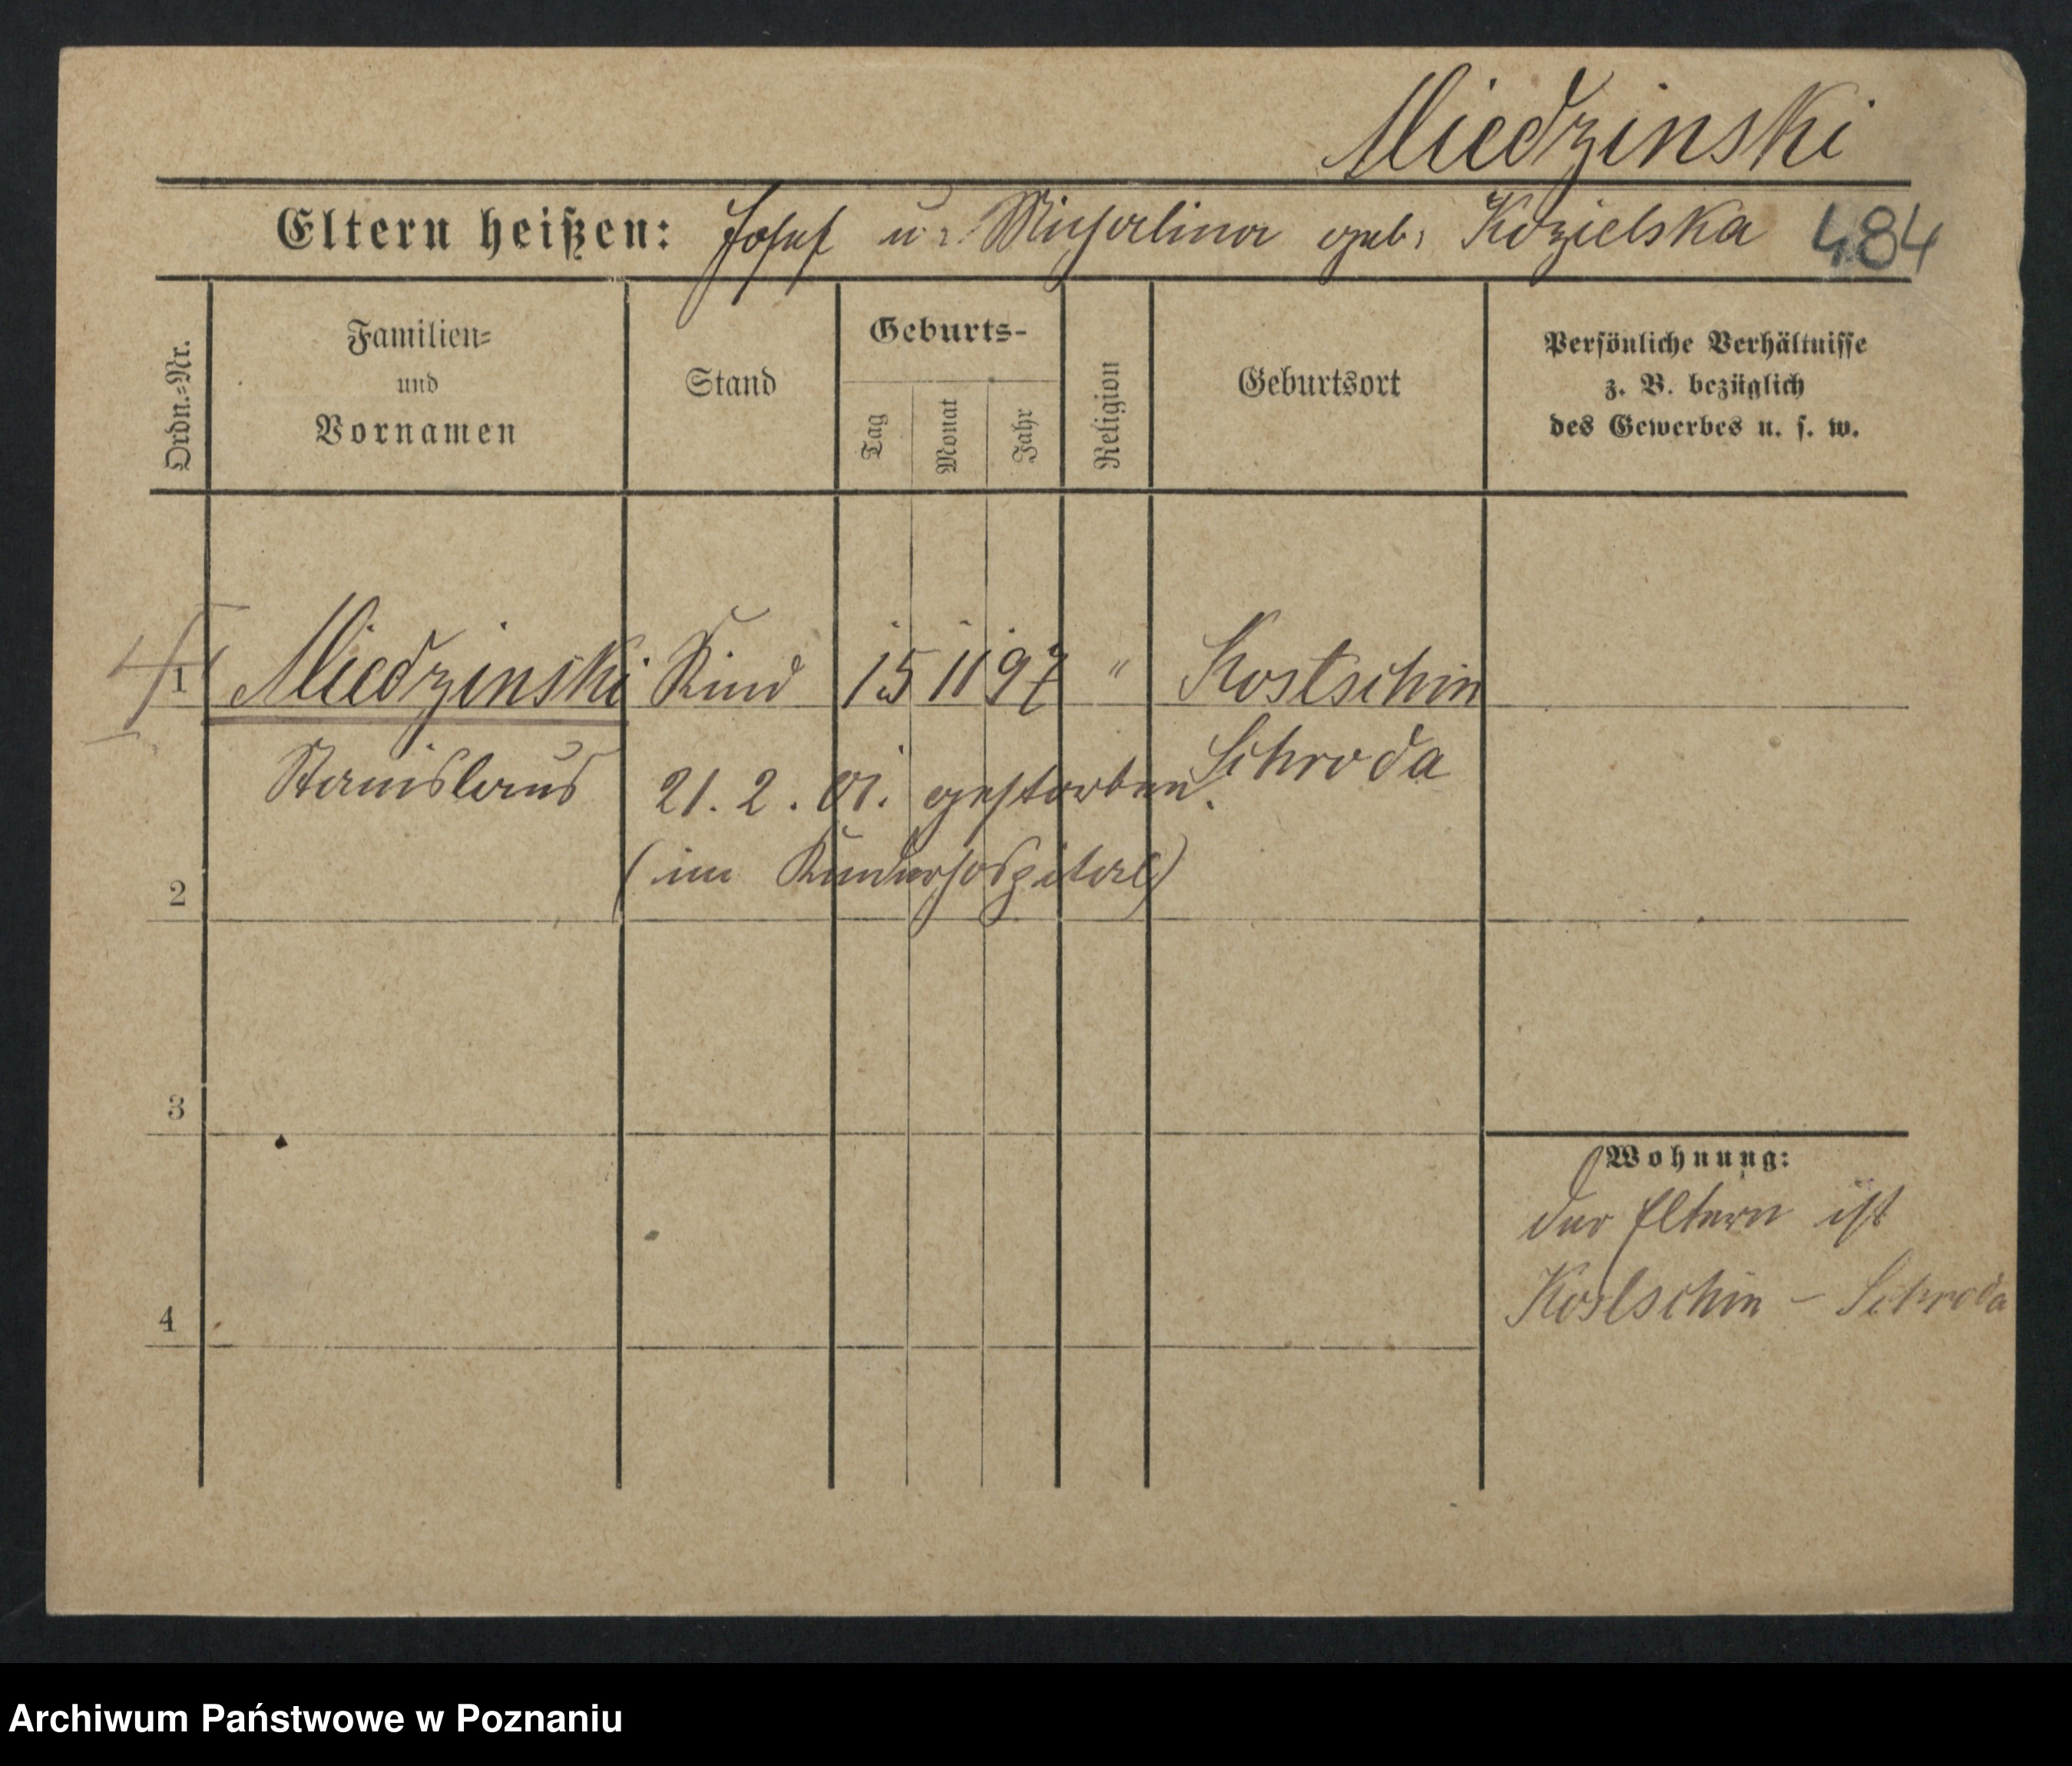 Miedzinski
Eltern heißen: Josef u. Michalina geb. Kozielska 484
Ordn.-Nr.
Familien-
und
Vornamen
Stand
Geburts-
Tag
Monat
Jahr
Religion
Geburtsort
Persönliche Verhältnisse
z. B. bezüglich
des Gewerbes u. s. w.
1 Miedzinski Kind 15 11 97 " Kostschin
Stanislaus Schroda
21. 2. 01. gestorben.
(im Kinderhospital)
2
3
4
Wohnung:
der Eltern ist
Kostschin - Schroda
Archiwum Państwowe w Poznaniu